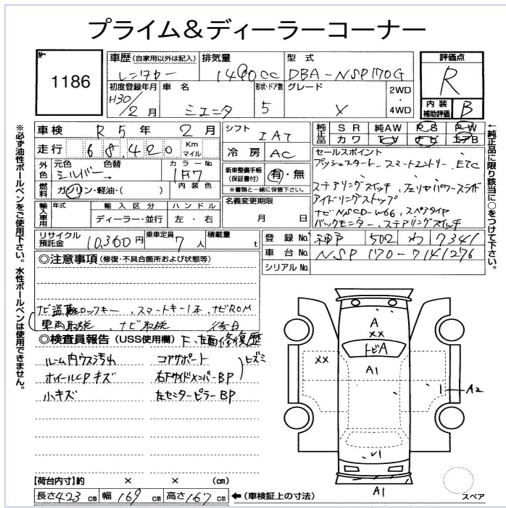 プライム＆ディーラーコーナー
No.
1186
車歴 (自家用以外は記入) 排気量 型式
レンタカー 1490cc DBA-NSP170G
初度登録年月 車名 形状・ドア数 グレード 2WD
H30/2月 シエンタ 5 X 4WD
評価点
R
内装補助評価 B
車検 R5年2月 シフト IAT
走行 68,420 Km マイル 冷房 AC
純正 SR 純AW PS PW
社外 カワ エアB
外装 元色 色替 カラーNo.
シルバー 1F7
燃料 ガソリン・軽油・( ) 内装色
新車整備手帳(保証書付) 有・無
※(書類と一緒に後送り)
名義変更期限
月 日
輸入車用 年式 輸入区分 ハンドル
ディーラー・並行 左・右
セールスポイント
プッシュスタート、スマートエントリー、ETC
ステアリングスイッチ、左リヤパワースライド
アイドリングストップ、スペアタイヤ
バックモニター、ステアリングスイッチ
リサイクル預託金 10,360円 乗車定員 7人 積載量 t
登録No. 神戸 502 わ 7341
車台No. NSP170-7141276
シリアルNo.
※必ず油性ボールペンをご使用下さい。水性ボールペンは使用できません。
←純正品に限り該当に○をつけて下さい。
◎注意事項 (修復・不具合箇所および状態等)
ナビ盗難ロックキー、スマートキー1ヶ、ナビROM
車両取説、ナビ取説 後日
◎検査員報告 (USS使用欄) 修復歴
ルーム内ウス汚れ コアサポート ヒズミ
ホイールCPキズ 右FサイドメンバーBP
小キズ 左センターピラーBP
A
XX
トビA
XX
A1
1
A2
V1
A1
スペア
【荷台内寸】約 × × (cm)
長さ 423 cm 幅 169 cm 高さ 167 cm ←(車検証上の寸法)